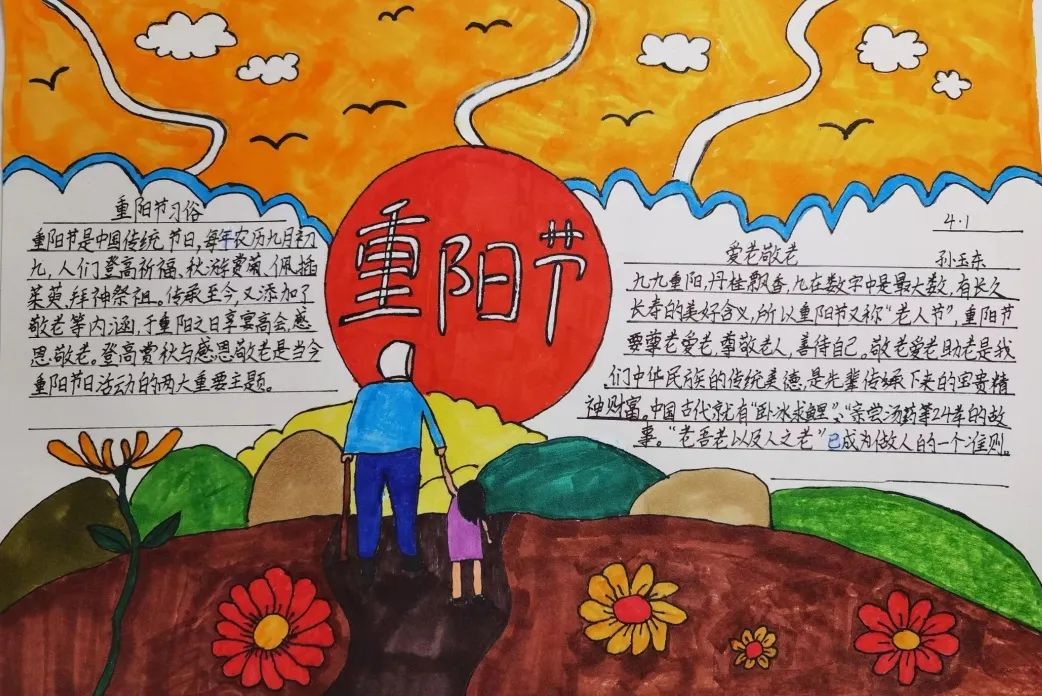 重阳节习俗
重阳节是中国传统节日,每年农历九月初
九,人们登高祈福、秋游赏菊、佩插
茱萸、拜神祭祖。传承至今,又添加了
敬老等内涵,于重阳之日享宴高会,感
恩敬老。登高赏秋与感恩敬老是当今
重阳节日活动的两大重要主题。
重阳节
4.1
爱老敬老
孙玉东
九九重阳,丹桂飘香,九在数字中是最大数,有长久
长寿的美好含义,所以重阳节又称“老人节”,重阳节
要尊老爱老,尊敬老人,善待自己。敬老爱老助老是我
们中华民族的传统美德,是先辈传承下来的宝贵精
神财富。中国古代就有“卧冰求鲤”、“亲尝汤药等24孝的故
事。“老吾老以及人之老”已成为做人的一个准则。